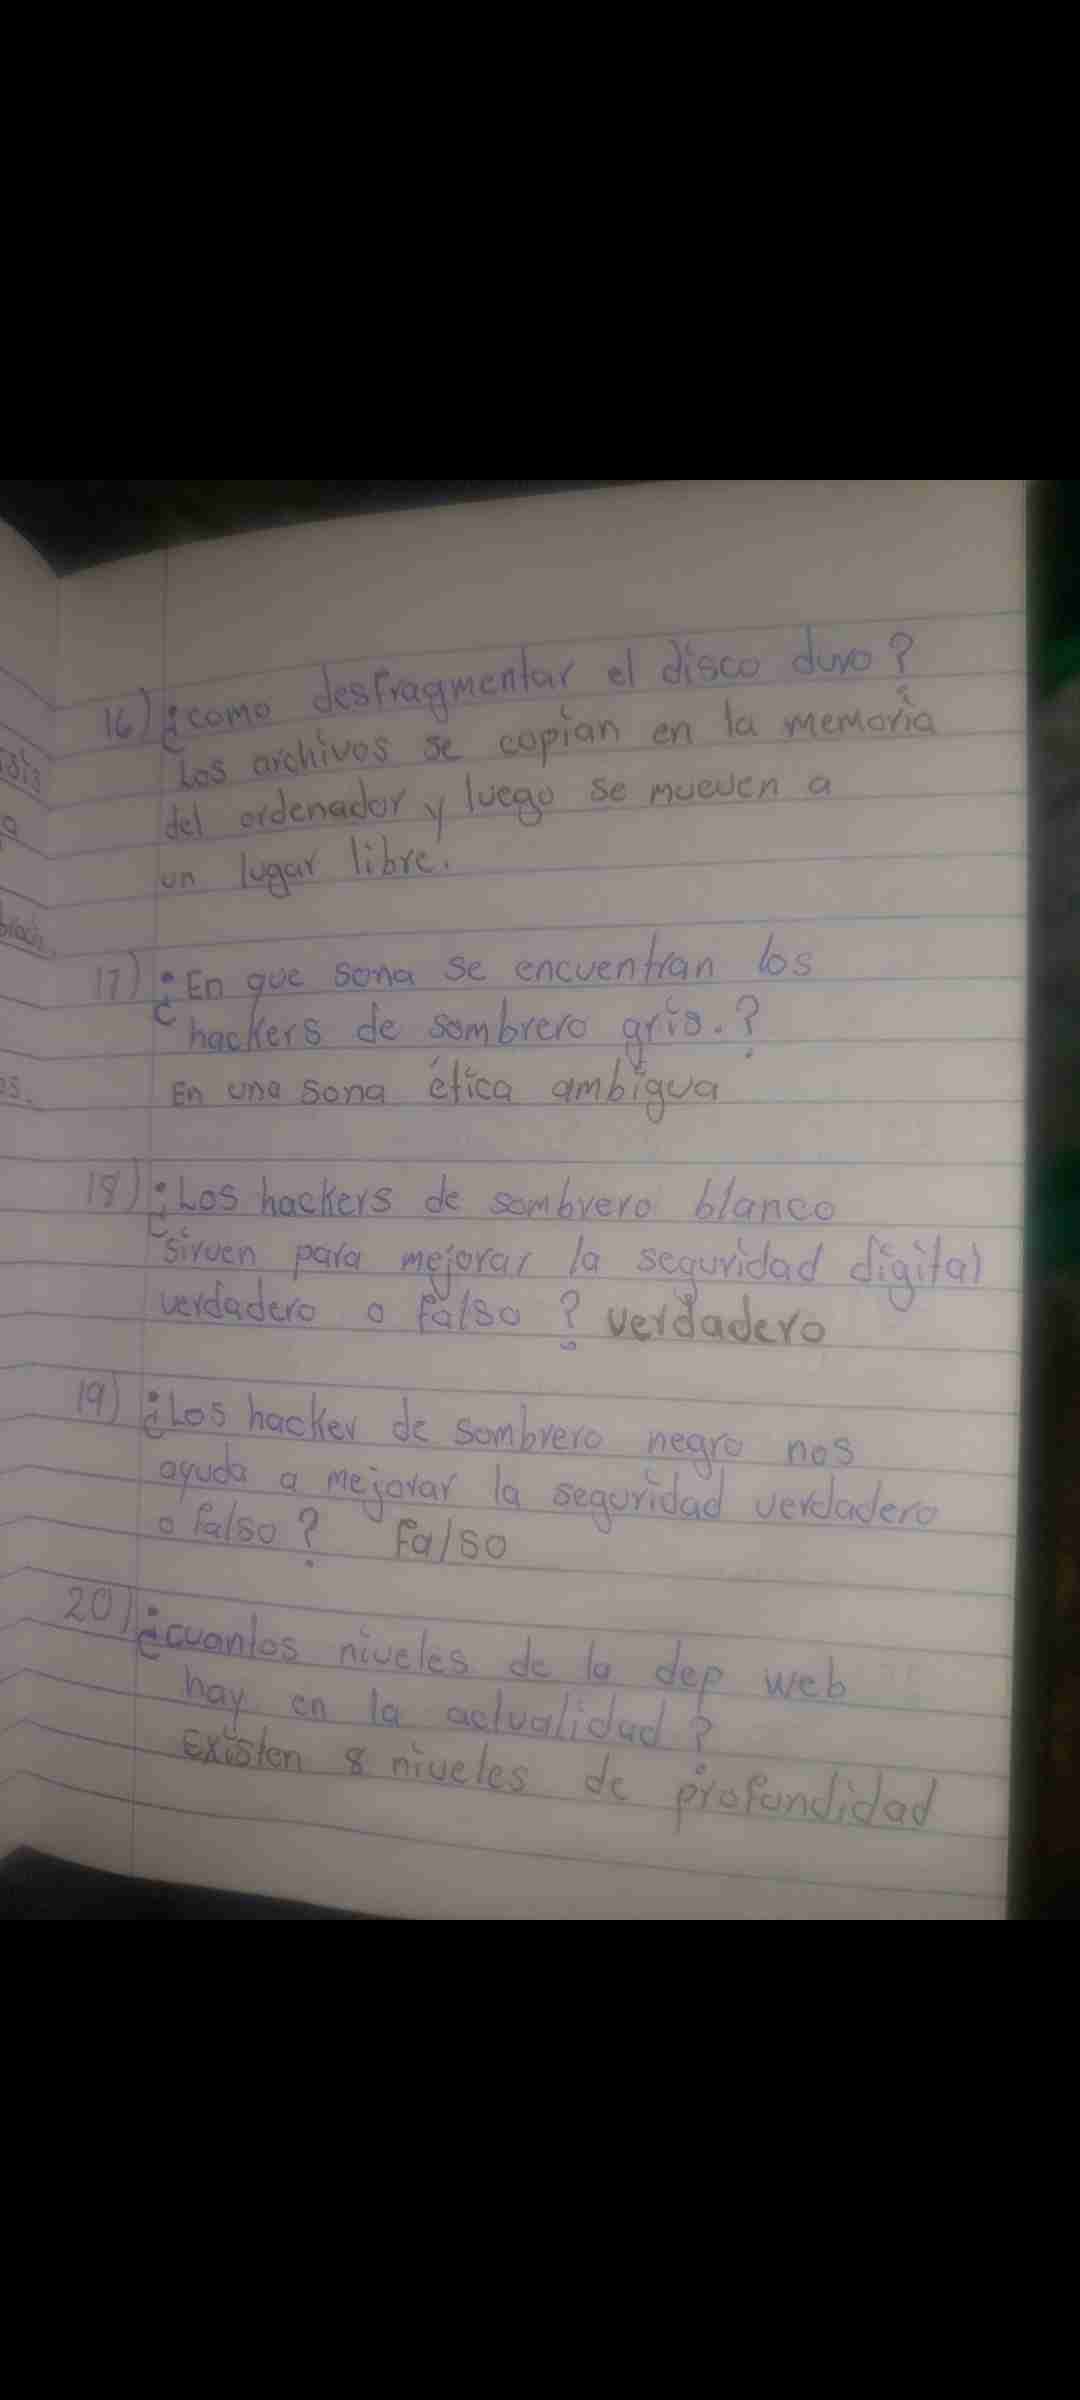 16) ¿como desfragmentar el disco duro?
Los archivos se copian en la memoria
del ordenador y luego se mueven a
un lugar libre.
17) ¿En que sona se encuentran los
hackers de sombrero gris.?
En una sona ética ambigua
18) ¿Los hackers de sombrero blanco
sirven para mejorar la seguridad digital
verdadero o falso? verdadero
19) ¿Los hacker de sombrero negro nos
ayuda a mejorar la seguridad verdadero
o falso? Falso
20) ¿cuantos niveles de la dep web
hay en la actualidad?
Existen 8 niveles de profundidad